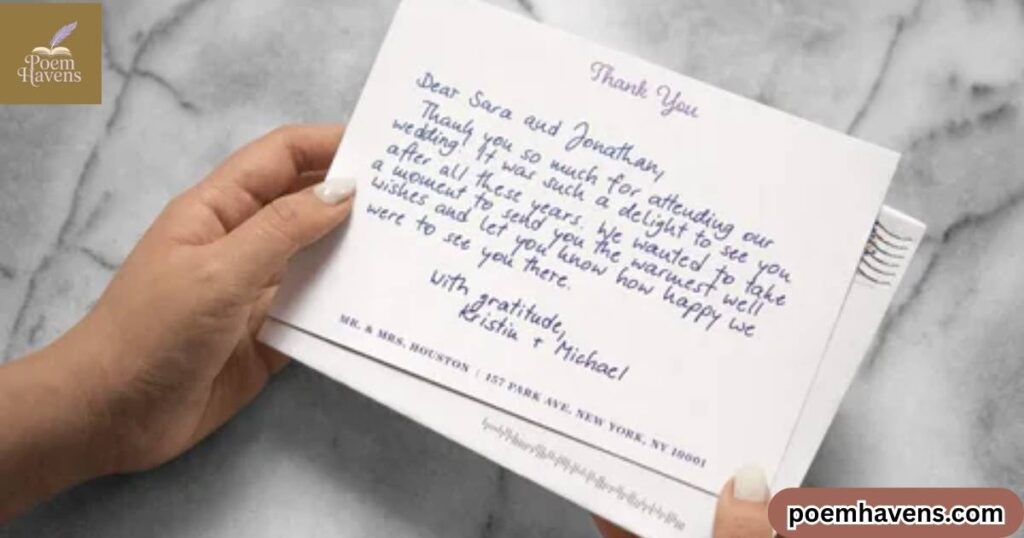 Poem
Havens
Thank You
Dear Sara and Jonathan,
Thank you so much for attending our
wedding! It was such a delight to see you
after all these years. We wanted to take
a moment to send you the warmest well
wishes and let you know how happy we
were to see you there.
With gratitude,
Kristin + Michael
MR. & MRS. HOUSTON | 157 PARK AVE, NEW YORK, NY 10001
poemhavens.com